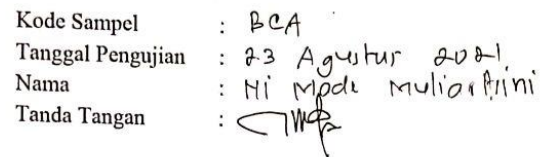 Kode Sampel : BCA
Tanggal Pengujian : 23 Agustur 2021
Nama : Ni Made Muliartini
Tanda Tangan :